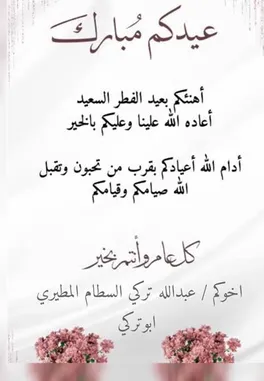 عيدكم مُبارك
أهنئكم بعيد الفطر السعيد
أعاده الله علينا وعليكم بالخير
أدام الله أعيادكم بقرب من تحبون وتقبل
الله صيامكم وقيامكم
كل عام وأنتم بخير
اخوكم / عبدالله تركي السطام المطيري
ابوتركي